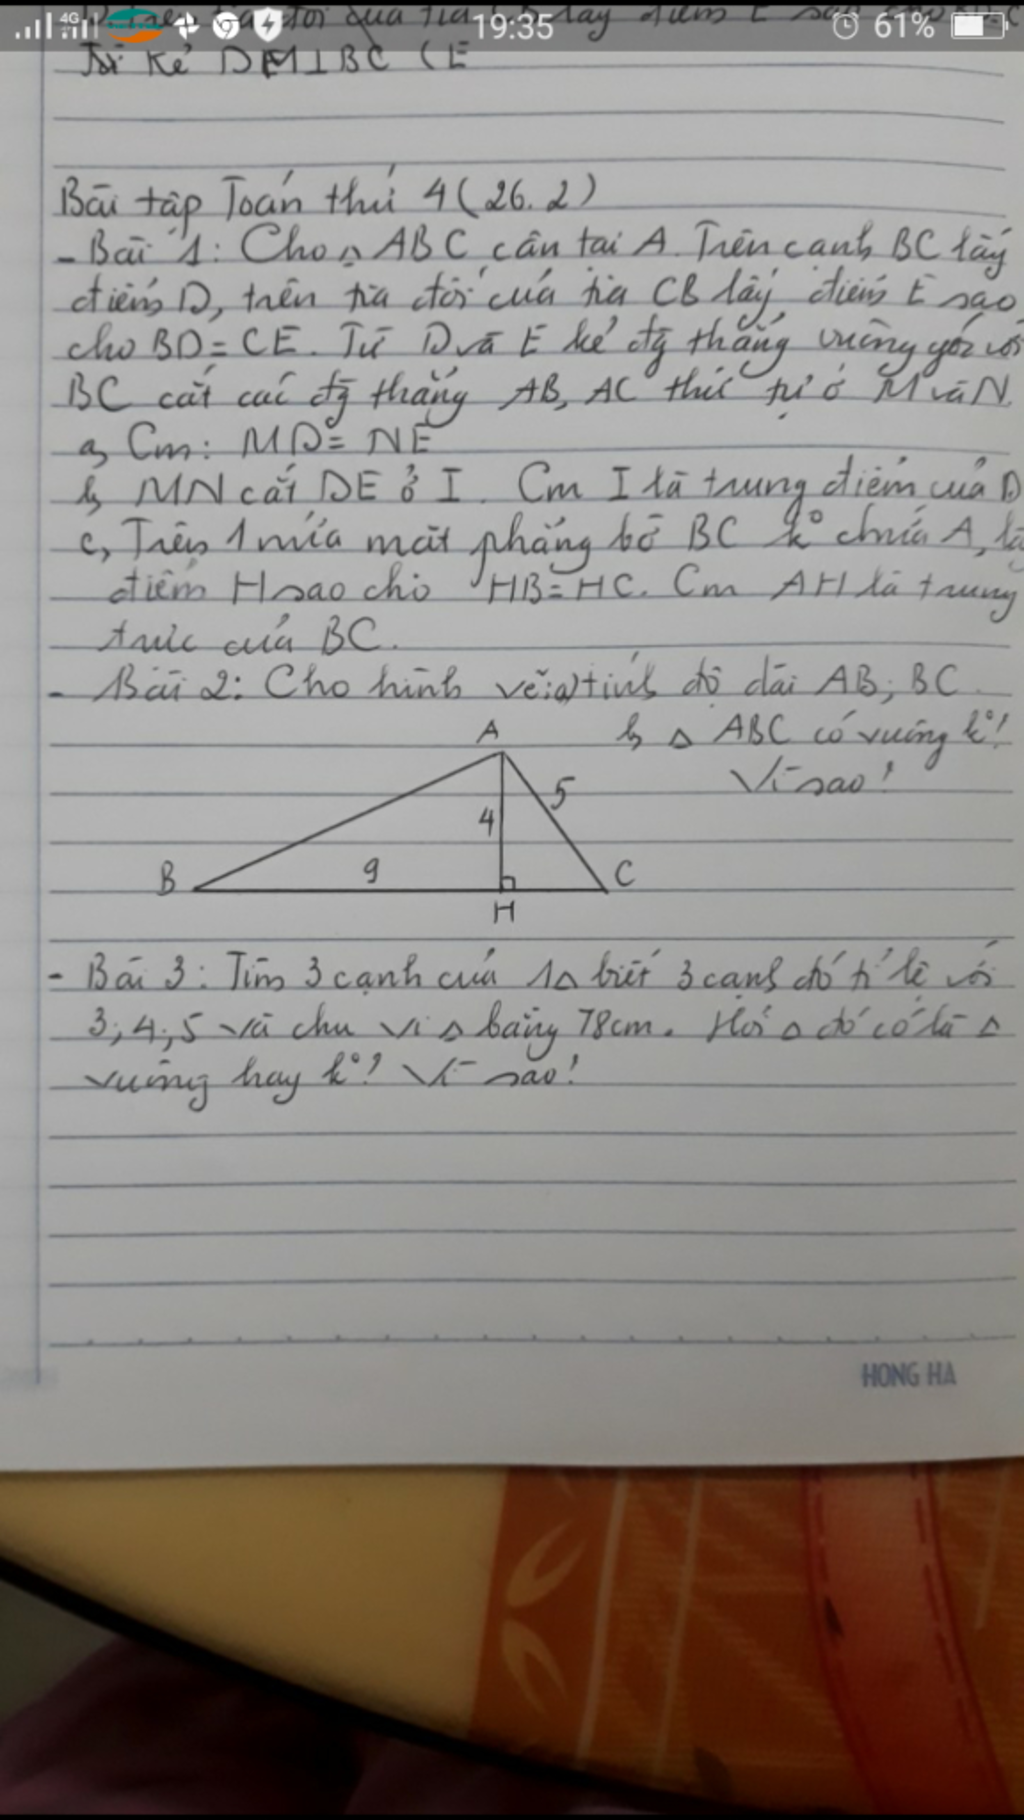 4G 19:35 61%
kẻ DM⊥BC (E
Bài tập Toán thứ 4 (26.2)
- Bài 1: Cho △ ABC cân tại A. Trên cạnh BC lấy
điểm D, trên tia đối của tia CB lấy điểm E sao
cho BD = CE. Từ D và E kẻ đg thẳng vuông góc với
BC cắt các đg thẳng AB, AC thứ tự ở M và N.
a, Cm: MD = NE
b, MN cắt DE ở I. Cm I là trung điểm của D
c, Trên 1 nửa mặt phẳng bờ BC k° chứa A, lấ
điểm H sao cho HB = HC. Cm AH là trung
trực của BC.
- Bài 2: Cho hình vẽ: a) tính độ dài AB; BC.
b, △ ABC có vuông k°?
Vì sao?
A
5
4
B 9 C
H
- Bài 3: Tìm 3 cạnh của 1△ biết 3 cạnh đó tỉ lệ với
3; 4; 5 và chu vi △ bằng 78cm. Hỏi △ đó có là △
vuông hay k°? Vì sao?
HONG HA